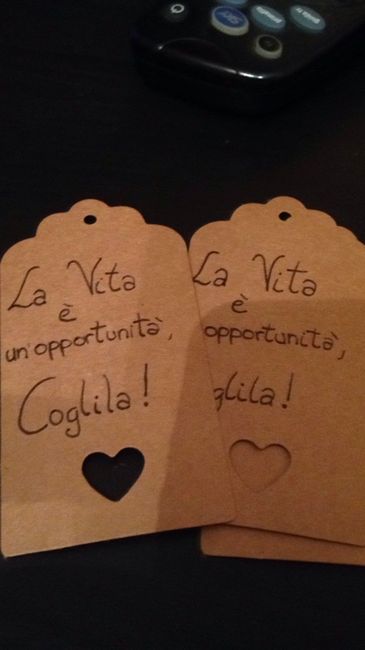 La Vita
è
un'opportunità,
Coglila!
La Vita
è
opportunità,
glila!